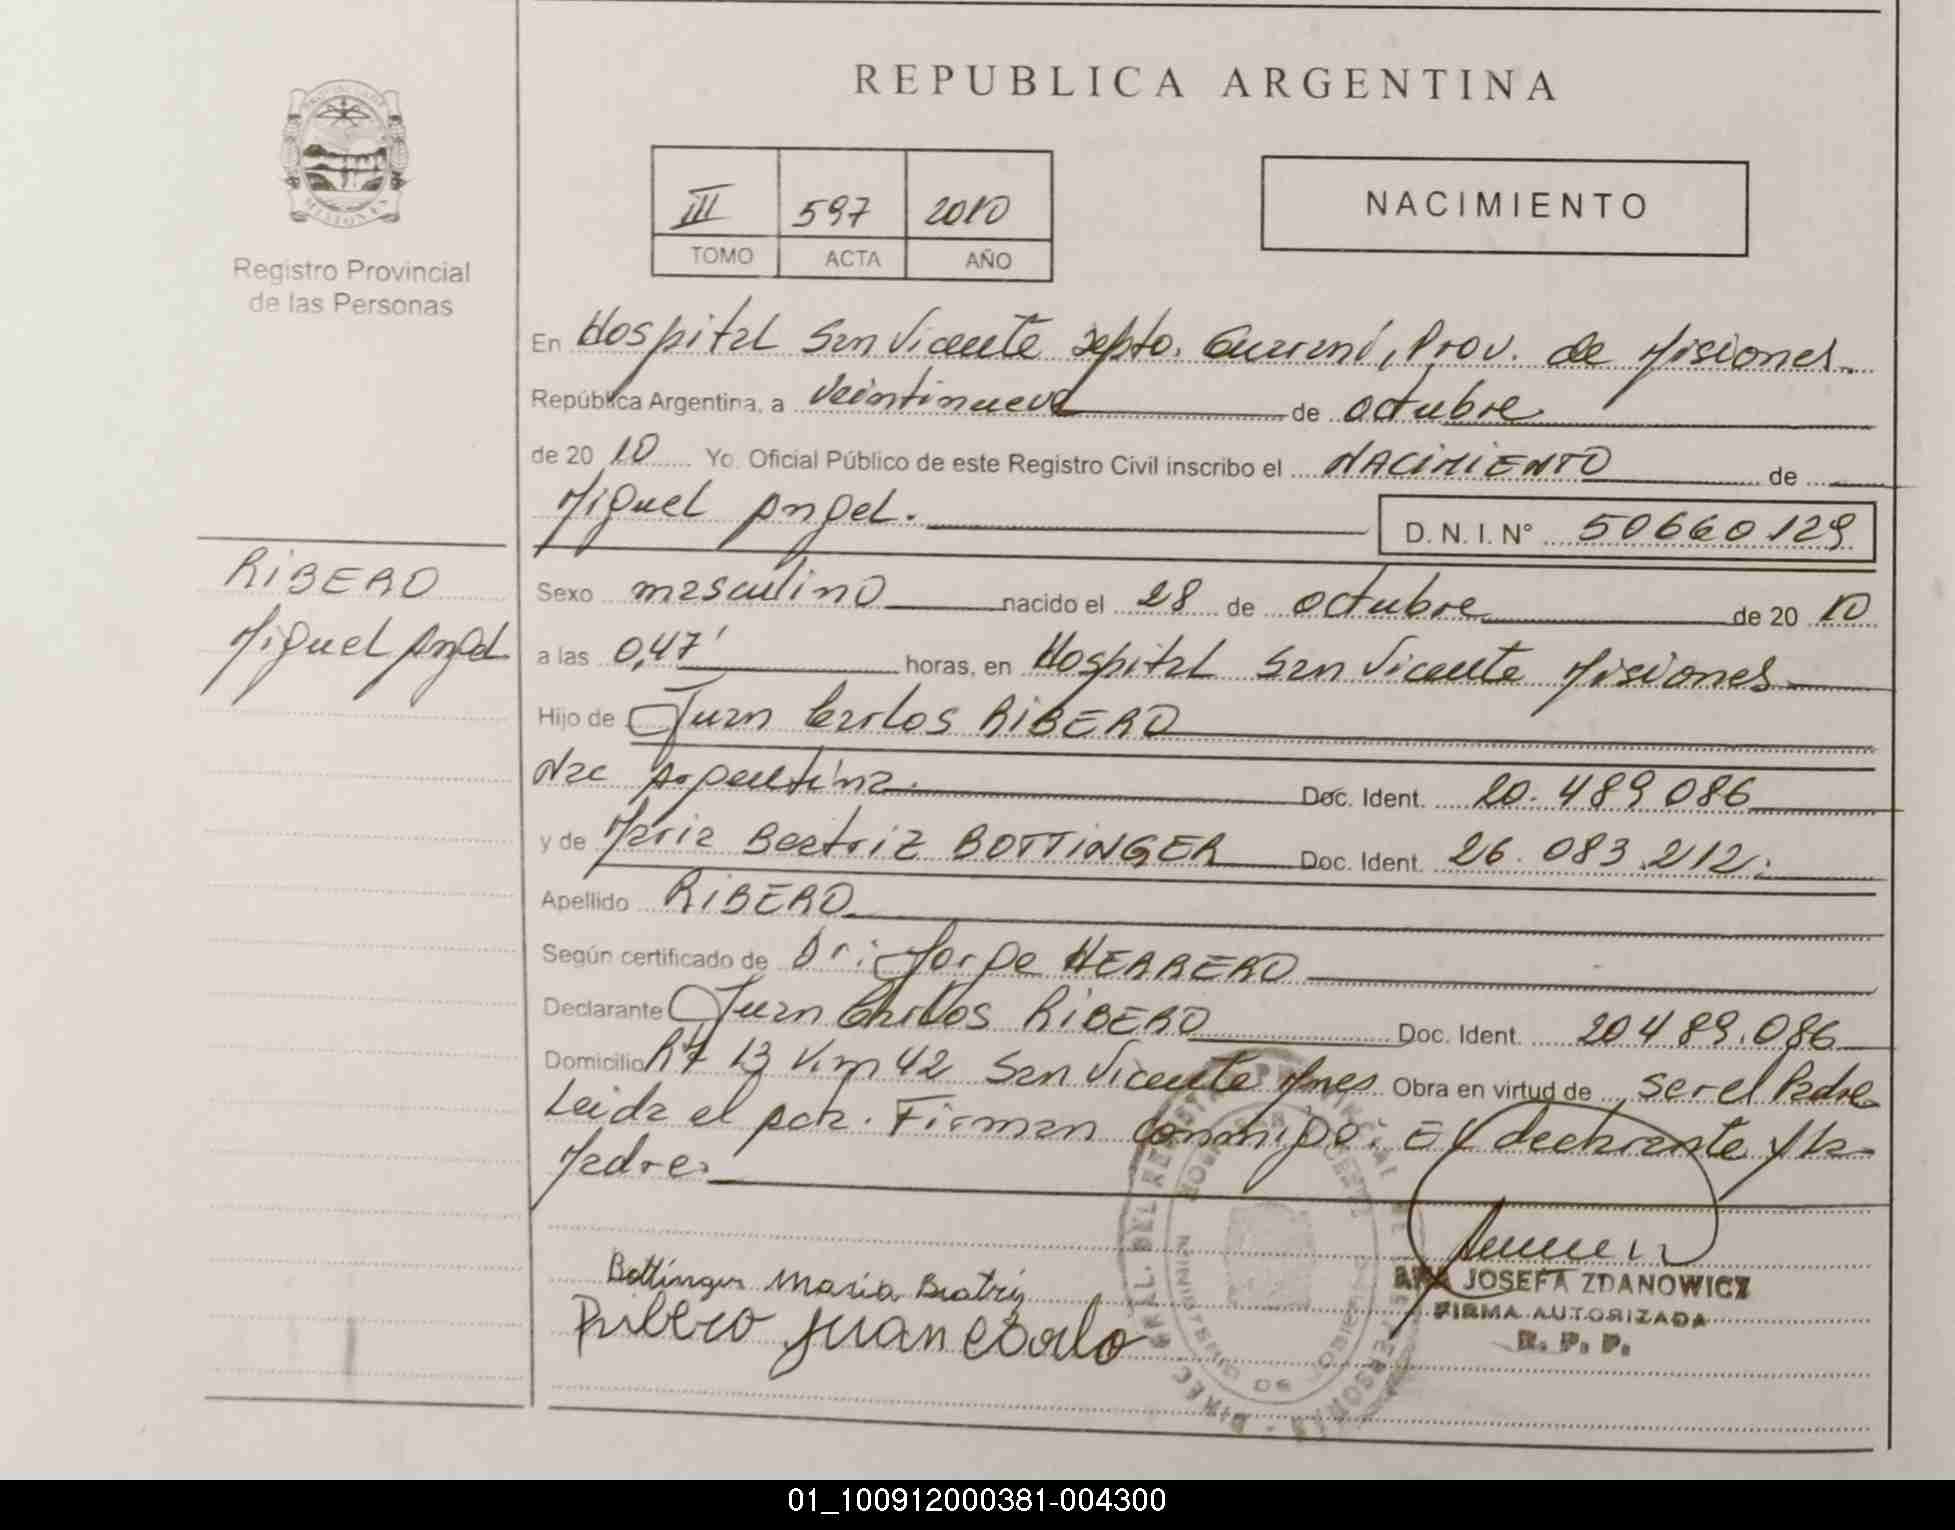 REPUBLICA ARGENTINA
PROVINCIA DE
MISIONES
Registro Provincial
de las Personas
III 597 2010
TOMO ACTA AÑO
NACIMIENTO
En Hospital San Vicente Depto. Guaraní, Prov. de Misiones
República Argentina, a veintinueve de octubre
de 2010 Yo, Oficial Público de este Registro Civil inscribo el NACIMIENTO de
Miguel Angel.
D. N. I. N° 50660129
RIBERO
Miguel Angel
Sexo masculino nacido el 28 de octubre de 2010
a las 0,47' horas, en Hospital San Vicente Misiones
Hijo de Juan Carlos RIBERO
Nac Argentina. Doc. Ident. 20.489.086
y de Maria Beatriz BOTTINGER Doc. Ident. 26.083.212.
Apellido RIBERO
Según certificado de Dr: Jorge HERRERO
Declarante Juan Carlos RIBERO Doc. Ident. 20489.086
Domicilio Rta 13 Km 42 San Vicente Mnes Obra en virtud de ser el Padre
Leida el acta. Firman conmigo. El declarante y la
Madre.
Bottinger Maria Beatriz
Ribero Juan Carlo
JOSEFA ZDANOWICZ
FIRMA AUTORIZADA
R. P. P.
01_100912000381-004300